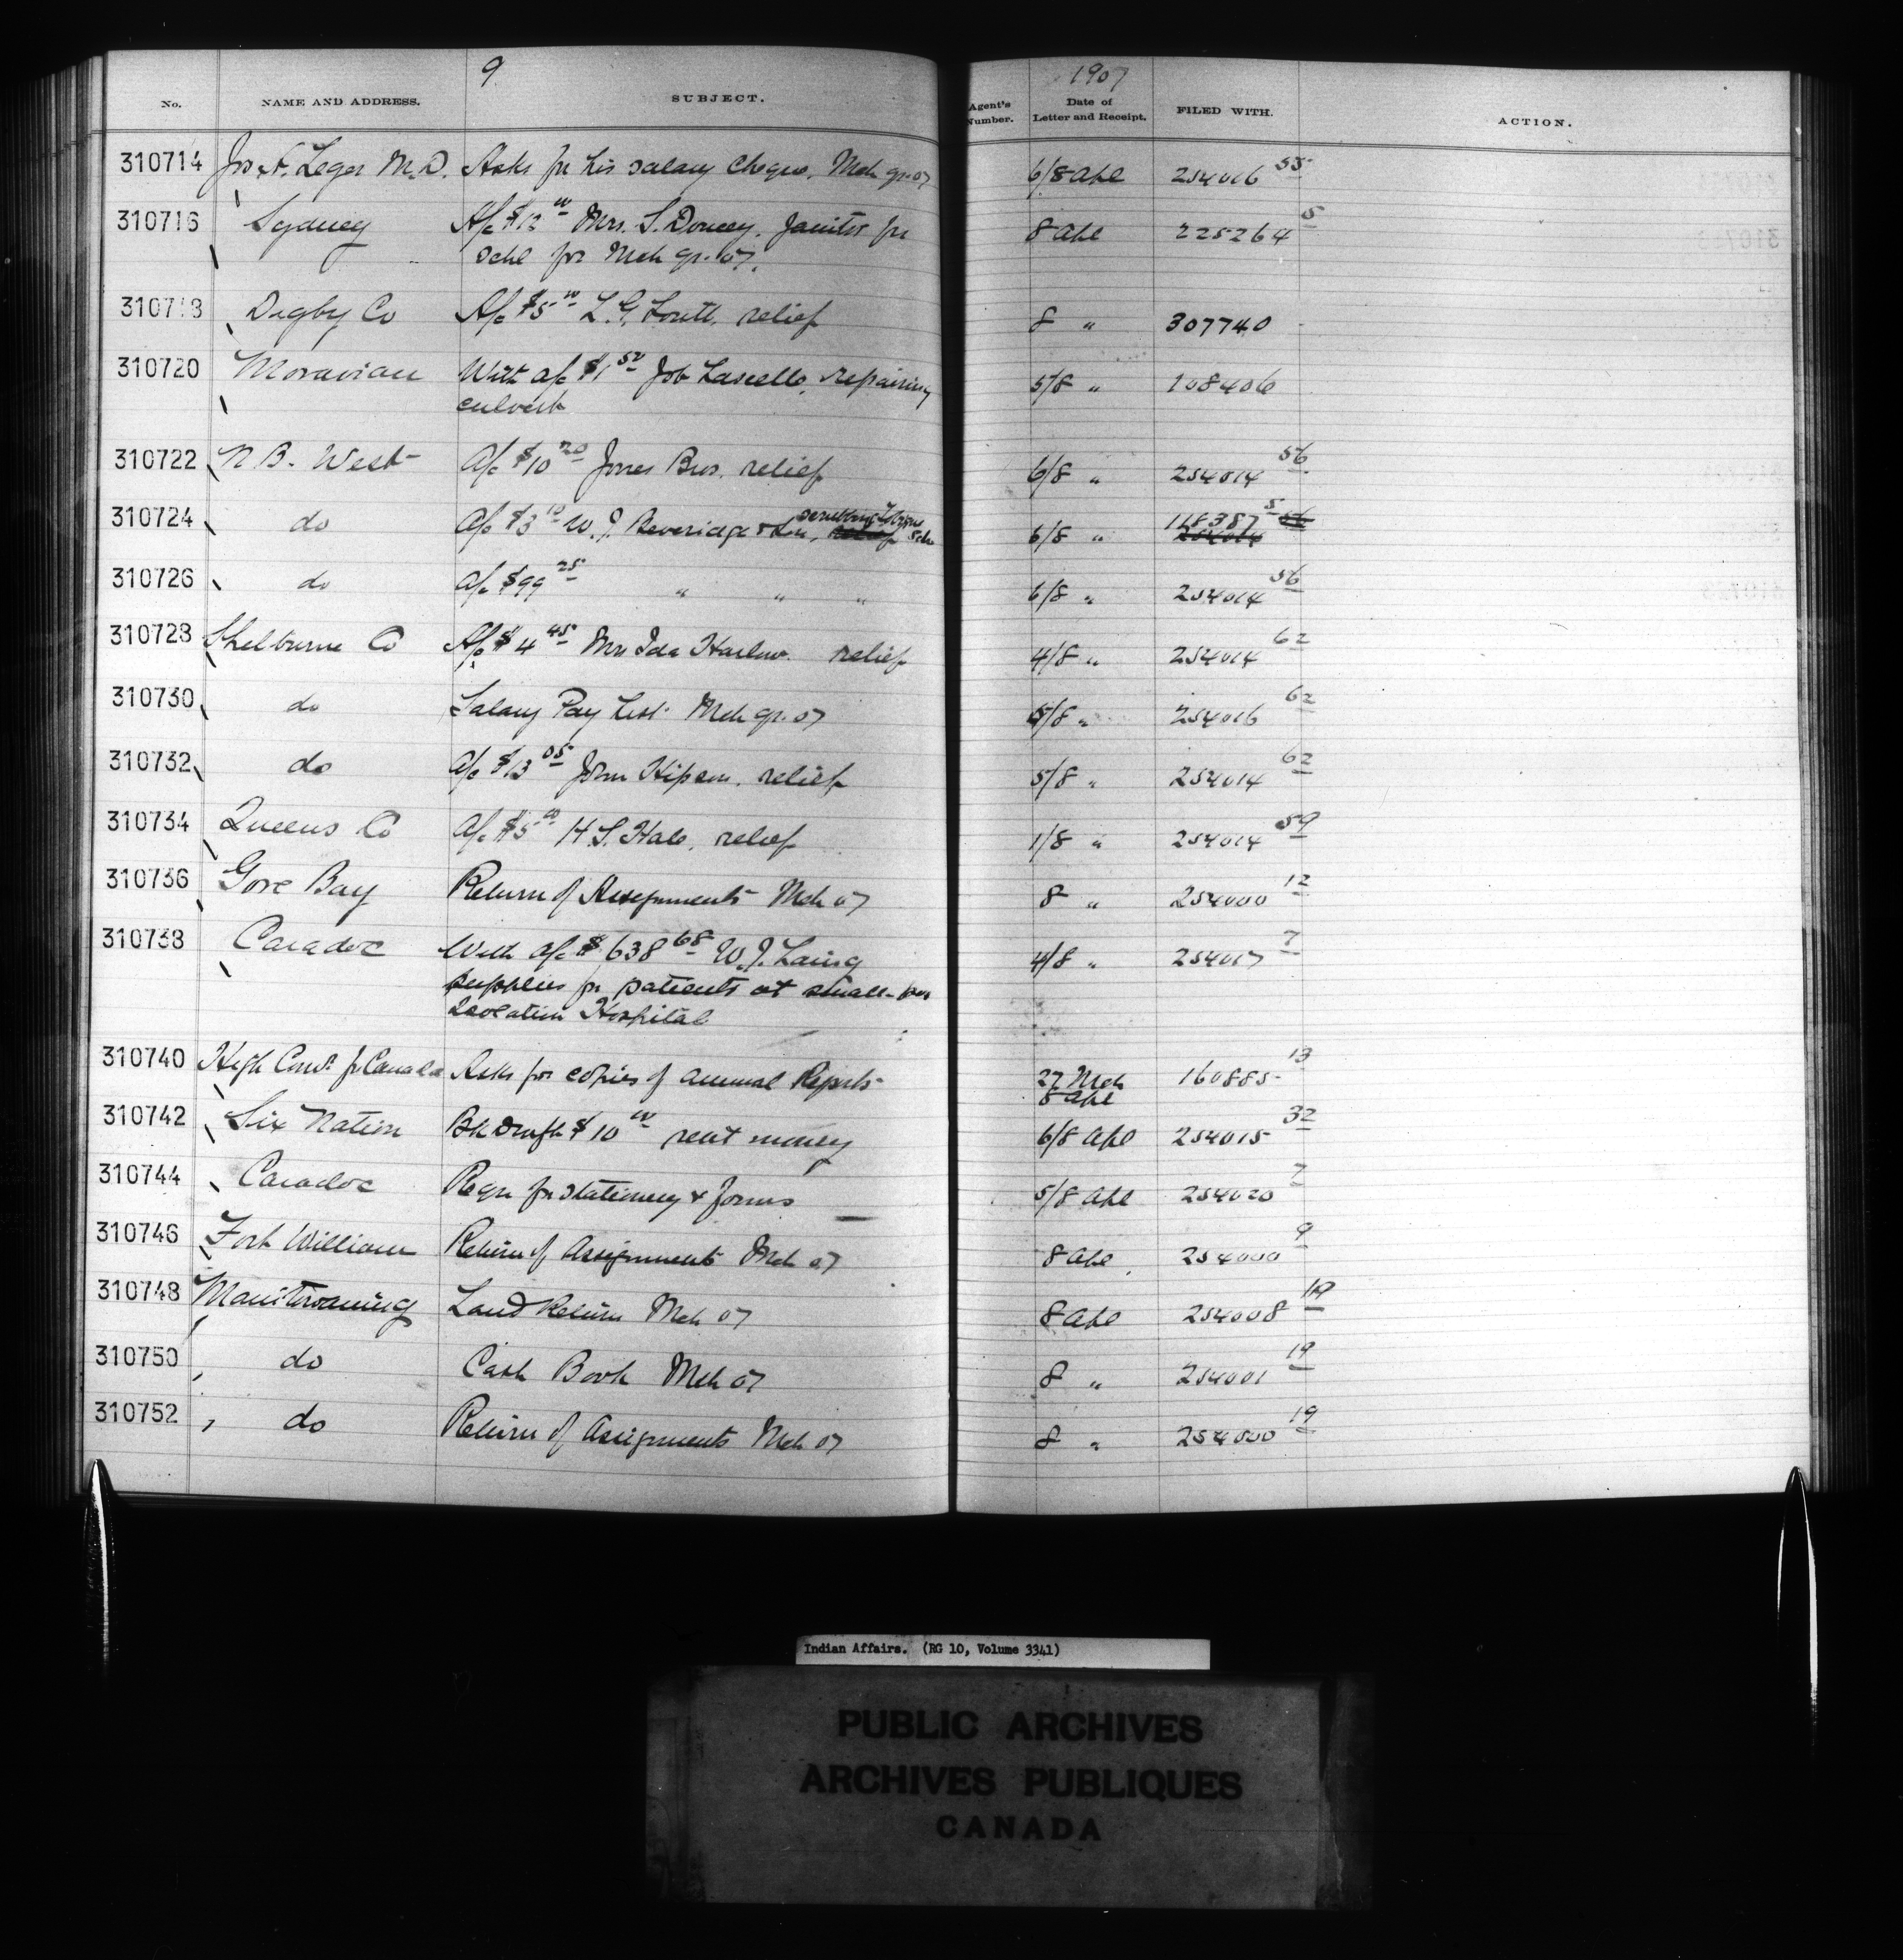 9
1907
No. NAME AND ADDRESS. SUBJECT. Agent's Number. Date of Letter and Receipt. FILED WITH. ACTION.
310714 Jos. Leger M.D. Asks for his salary cheque, Mch qr. 07 6/8 Apl 254016 55
310716 Sydney A/c $12 00 Mrs. S. Doucey. Janitor for 8 Apl 225264 5
schl for Mch qr. 07.
310718 Digby Co A/c $5 00 L.G. relief 8 " 307740
310720 Moravian With a/c $1 50 Job repairing 5/8 " 108406
culvert
310722 N B. West A/c $10 20 Jones Bros. relief 6/8 " 254014 56
310724 do A/c $3 10 W. J. Beveridge & Son, scrubbing Tobique Sch 6/8 " 118387 5
254014 56
310726 do A/c $99 25 " " " 6/8 " 254014 56
310728 Shelburne Co A/c $4 45 Mrs Ida Harlow. relief 4/8 " 254014 62
310730 do Salary Pay List Mch qr. 07 5/8 " 254016 62
310732 do A/c $13 05 John Hipson. relief 5/8 " 254014 62
310734 Queens Co A/c $5 00 H. S. Hale, relief 1/8 " 254014 59
310736 Gore Bay Return of Assignments Mch 07 8 " 254000 12
310738 Caradoc With a/c $638 68 W. J. Laing 4/8 " 254017 7
supplies for patients at small-pox
Isolation Hospital
310740 High Comr. fr Canada Asks for copies of annual Reports 27 Mch 160885 13
8 Apl
310742 Six Nation Bk Draft $10 00 rent money 6/8 Apl 254015 32
310744 Caradoc Reqn for stationery & forms 5/8 Apl 254020 7
310746 Fort William Return of Assignments Mch 07 8 Apl 254000 9
310748 Manitowaning Land Return Mch 07 8 Apl 254008 19
310750 do Cash Book Mch 07 8 " 254001 19
310752 do Return of Assignments Mch 07 8 " 254000 19
Indian Affairs. (RG 10, Volume 3341)
PUBLIC ARCHIVES
ARCHIVES PUBLIQUES
CANADA